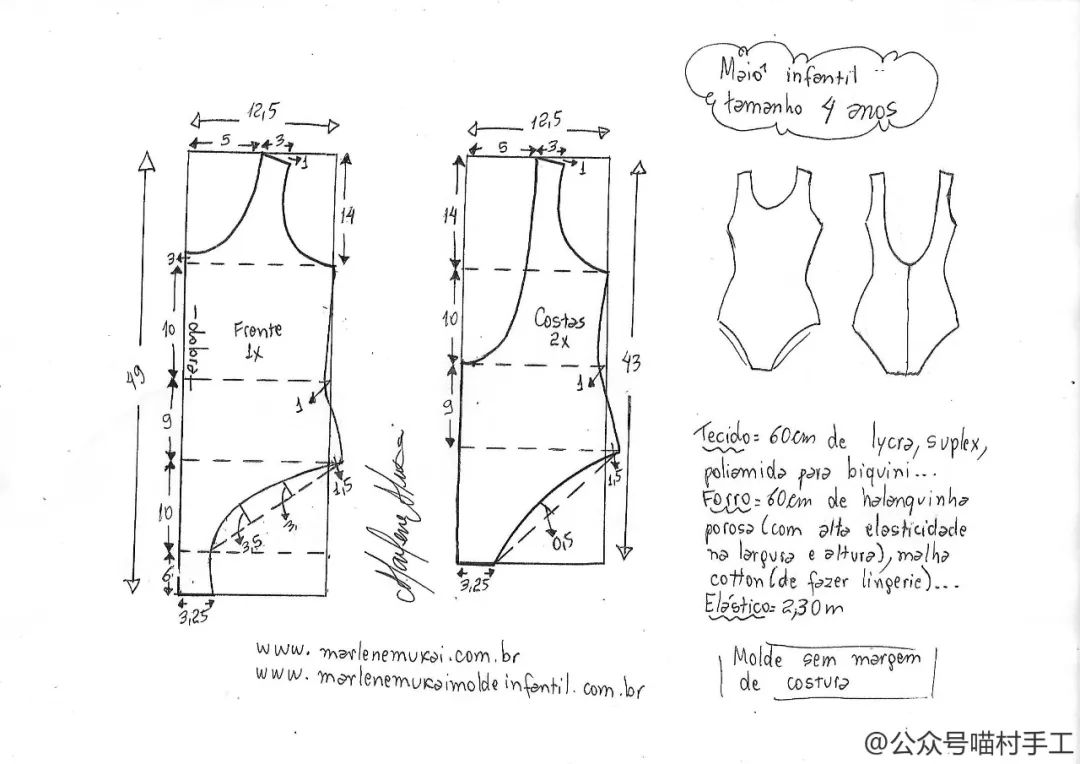 Maiô infantil
tamanho 4 anos
12,5
5
3
1
14
3
10
dobra
Frente
1x
49
1
9
1,5
10
3,5
3
6
3,25
12,5
5
3
1
14
10
Costas
2x
43
1
9
1,5
0,5
3,25
Marlene Mukai
Tecido= 60cm de lycra, suplex,
poliamida para biquini...
Forro= 60cm de helanquinha
porosa (com alta elasticidade
na largura e altura), malha
cotton (de fazer lingerie)...
Elástico= 2,30m
www.marlenemukai.com.br
www.marlenemukaimoldeinfantil.com.br
Molde sem margem
de costura
@公众号喵村手工